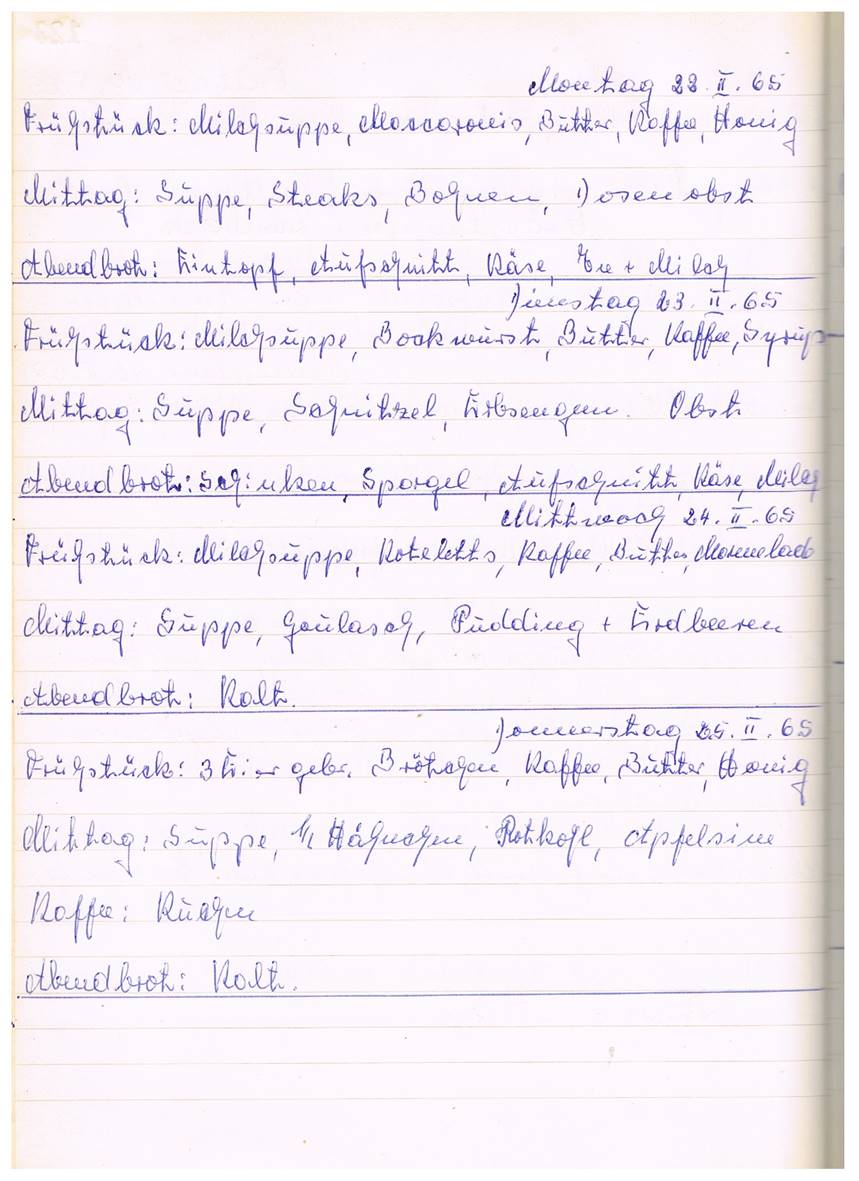 Montag 22. II. 65
Frühstück: Milchsuppe, Maccaronis, Butter, Kaffee, Honig
Mittag: Suppe, Steaks, Bohnen, Dosenobst
Abendbrot: Eintopf, Aufschnitt, Käse, Tee + Milch
Dienstag 23. II. 65
Frühstück: Milchsuppe, Bockwurst, Butter, Kaffee, Syrup
Mittag: Suppe, Schnitzel, Erbsengem. Obst
Abendbrot: Schinken, Spargel, Aufschnitt, Käse, Milch
Mittwoch 24. II. 65
Frühstück: Milchsuppe, Koteletts, Kaffee, Butter, Marmelade
Mittag: Suppe, Goulasch, Pudding + Erdbeeren
Abendbrot: Kalt.
Donnerstag 25. II. 65
Frühstück: 3 Eier gebr. Brötchen, Kaffee, Butter, Honig
Mittag: Suppe, 1/1 Hähnchen, Rotkohl, Apfelsine
Kaffee: Kuchen
Abendbrot: Kalt.